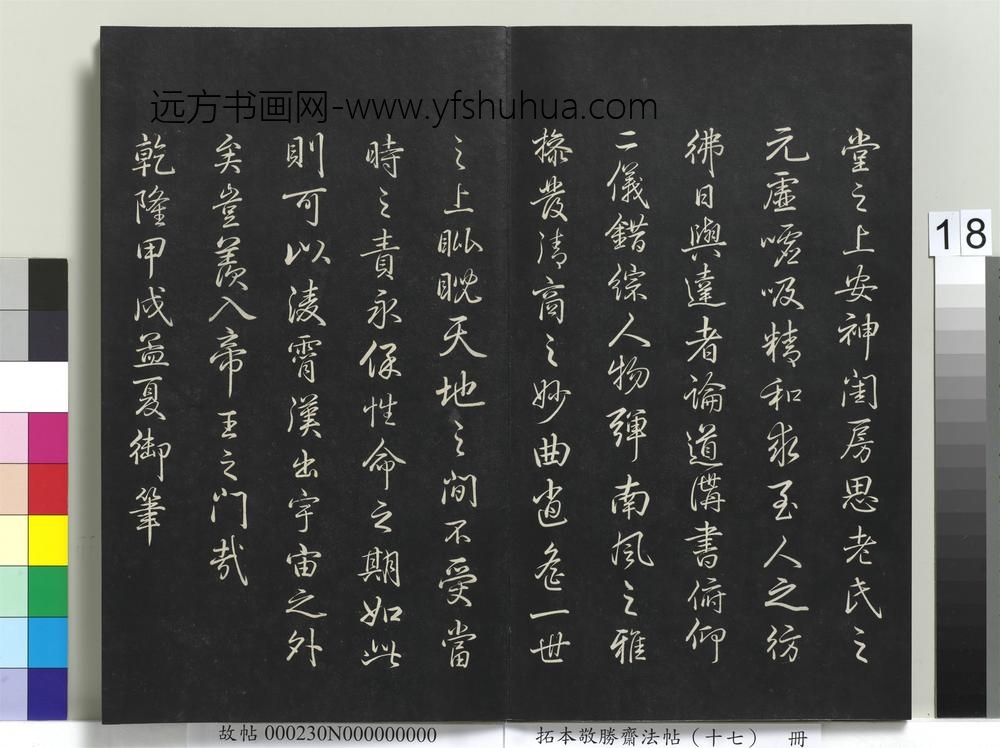 远方书画网-www.yfshuhua.com
堂之上安神閨房思老氏之
元虛噓吸精和求至人之彷
彿日與達者論道講書俯仰
二儀錯綜人物彈南風之雅
操發清高之妙曲逍遙一世
之上睥睨天地之間不受當
時之責永保性命之期如此
則可以凌霄漢出宇宙之外
矣豈羨入帝王之門哉
乾隆甲戌孟夏御筆
18
故帖 000230N000000000
拓本敬勝齋法帖（十七） 冊